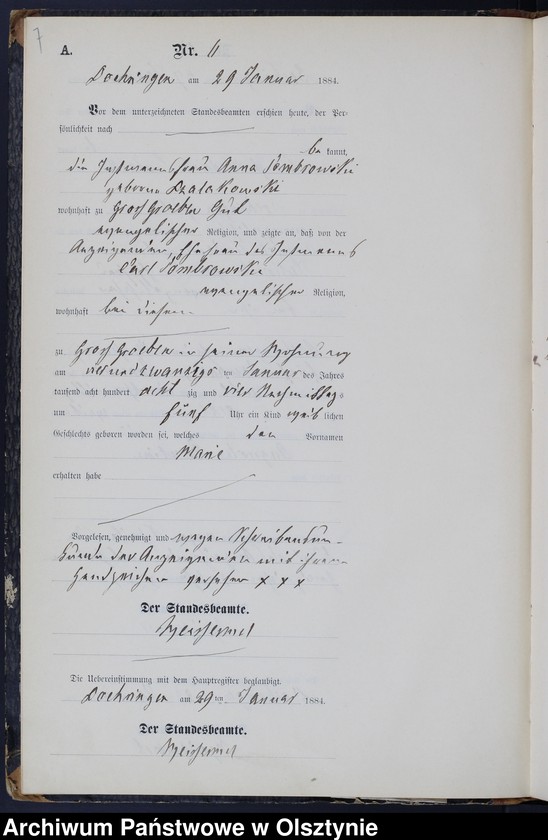 7
A. Nr. 11
Doehringen am 29 Januar 1884.
Vor dem unterzeichneten Standesbeamten erschien heute, der Per-
sönlichkeit nach
be kannt,
die Instmannsfrau Anna Dombrowski
geborne
wohnhaft zu Groß Groeben Gut
evangelischer Religion, und zeigte an, daß von der
Anzeigenden, Ehefrau des Instmanns
Carl Dombrowski
evangelischer Religion,
wohnhaft bei diesem
zu Groß Groeben in seiner Wohnung
am vierundzwanzigs ten Januar des Jahres
tausend acht hundert acht zig und vier Nachmittags
um fünf Uhr ein Kind weib lichen
Geschlechts geboren worden sei, welches den Vornamen
Marie
erhalten habe
Vorgelesen, genehmigt und wegen Schreibensun-
kunde der Anzeigenden mit ihrem
Handzeichen versehen x x x
Der Standesbeamte.
Weissermel
Die Uebereinstimmung mit dem Hauptregister beglaubigt.
Doehringen am 29ten Januar 1884.
Der Standesbeamte.
Weissermel
Archiwum Państwowe w Olsztynie